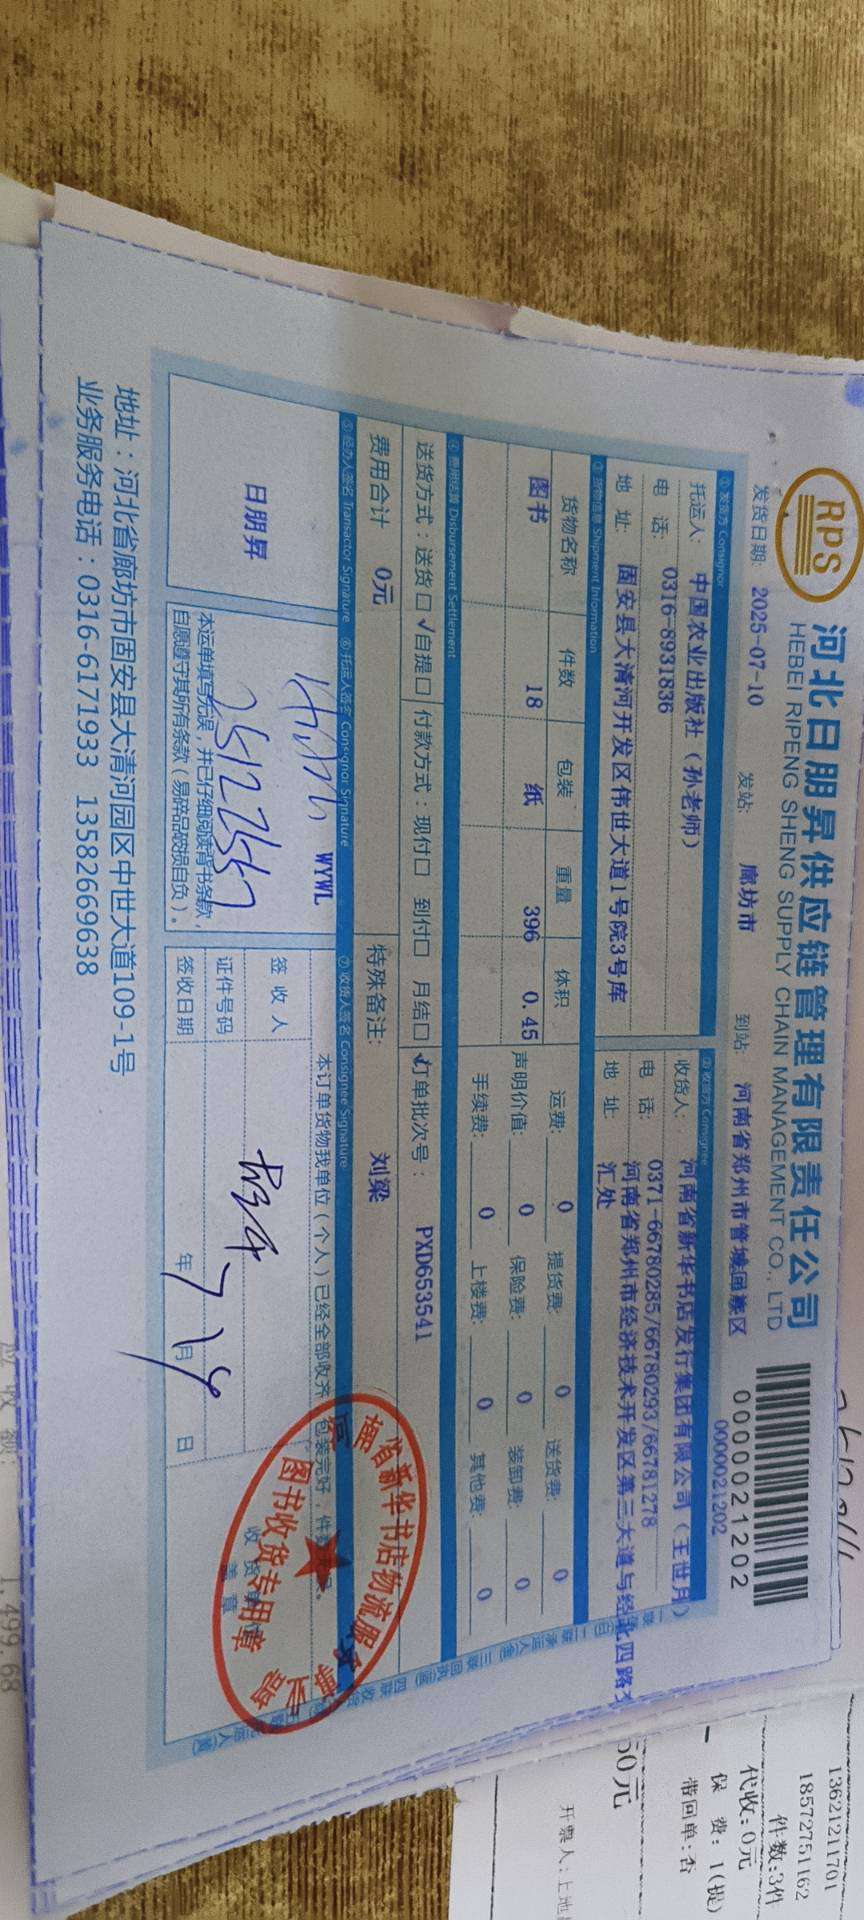 RPS
河北日朋昇供应链管理有限责任公司
HEBEI RIPENG SHENG SUPPLY CHAIN MANAGEMENT CO., LTD
0000021202
0000021202
发货日期: 2025-07-10 发站: 廊坊市 到站: 河南省郑州市管城回族区
①发货方 Consignor
托运人: 中国农业出版社（孙老师）
电 话: 0316-8931836
地 址: 固安县大清河开发区伟世大道1号院3号库
②收货方 Consignee
收货人: 河南省新华书店发行集团有限公司（王世月）
电 话: 0371-66780285/66780293/66781278
地 址: 河南省郑州市经济技术开发区第三大道与经北四路交
汇处
③货物信息 Shipment Information
货物名称 件数 包装 重量 体积
图书 18 纸 396 0.45
运费: 0 提货费: 0 送货费: 0
声明价值: 0 保险费: 0 装卸费: 0
手续费: 0 上楼费: 0 其他费: 0
④费用结算 Disbursement Settlement
送货方式：送货□ √自提□ 付款方式：现付□ 到付□ 月结□ √ 订单批次号： PXD653541
费用合计 0元 特殊备注: 刘梁
⑤经办人签名 Transactor Signature ⑥托运人签名 Consignor Signature ⑦收货人签名 Consignee Signature
日朋昇
WYWL
本运单填写无误，并已仔细阅读背书条款，
自愿遵守其所有条款（易碎品破损自负）。
本订单货物我单位（个人）已经全部收齐，包装完好，件数
签 收 人
证件号码
签收日期 年 7月19日
收货单位
盖 章
河南省新华书店物流服务
图书收货专用章
地址：河北省廊坊市固安县大清河园区中世大道109-1号
业务服务电话：0316-6171933 13582669638
13621211701
18572751162
件数:3件
代收:0元
保 费: 1(提)
带回单:否
50元
应 收 额:
1,499.68